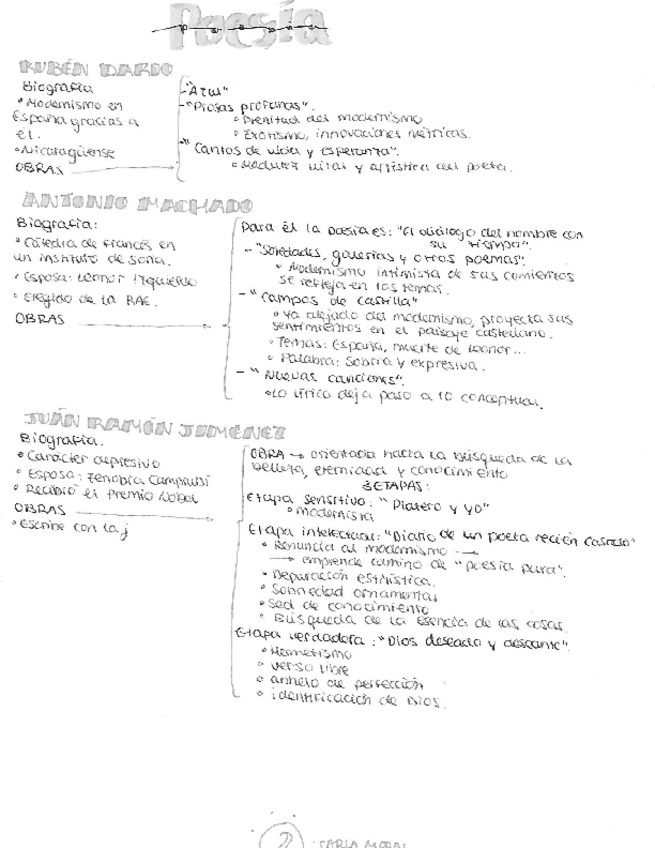 Poesía
RUBÉN DARÍO
Biografía
• Modernismo en
España gracias a
él.
• Nicaragüense
OBRAS
- "Azul"
- "Prosas profanas".
• Plenitud del modernismo
• Exotismo, innovaciones métricas.
- "Cantos de vida y esperanza".
• Madurez vital y artística del poeta.
ANTONIO MACHADO
Biografía:
• Cátedra de francés en
un instituto de Soria.
• Esposa: Leonor Izquierdo
• Elegido de la RAE.
OBRAS
Para él la poesía es: "El diálogo del hombre con
su tiempo".
- "Soledades, galerías y otros poemas".
• Modernismo intimista de sus comienzos
se refleja en los temas.
- "Campos de Castilla"
• Ya alejado del modernismo, proyecta sus
sentimientos en el paisaje castellano.
• Temas: España, muerte de Leonor...
• Palabra: Sobria y expresiva.
- "Nuevas canciones".
• Lo lírico deja paso a lo conceptual.
JUÁN RAMÓN JIMÉNEZ
Biografía.
• Carácter depresivo
• Esposa: Zenobia Camprubí
• Recibió el Premio Nobel
OBRAS
• Escribe con la j
OBRA → orientada hacia la búsqueda de la
belleza, eternidad y conocimiento
3 ETAPAS:
Etapa sensitiva: "Platero y yo"
• modernista
Etapa intelectual: "Diario de un poeta recién casado"
• Renuncia al modernismo →
→ emprende camino de "poesía pura".
• Depuración estilística.
• Sobriedad ornamental
• Sed de conocimiento
• Búsqueda de la esencia de las cosas.
Etapa verdadera: "Dios deseado y deseante".
• Hermetismo
• verso libre
• anhelo de perfección
• identificación de Dios.
2